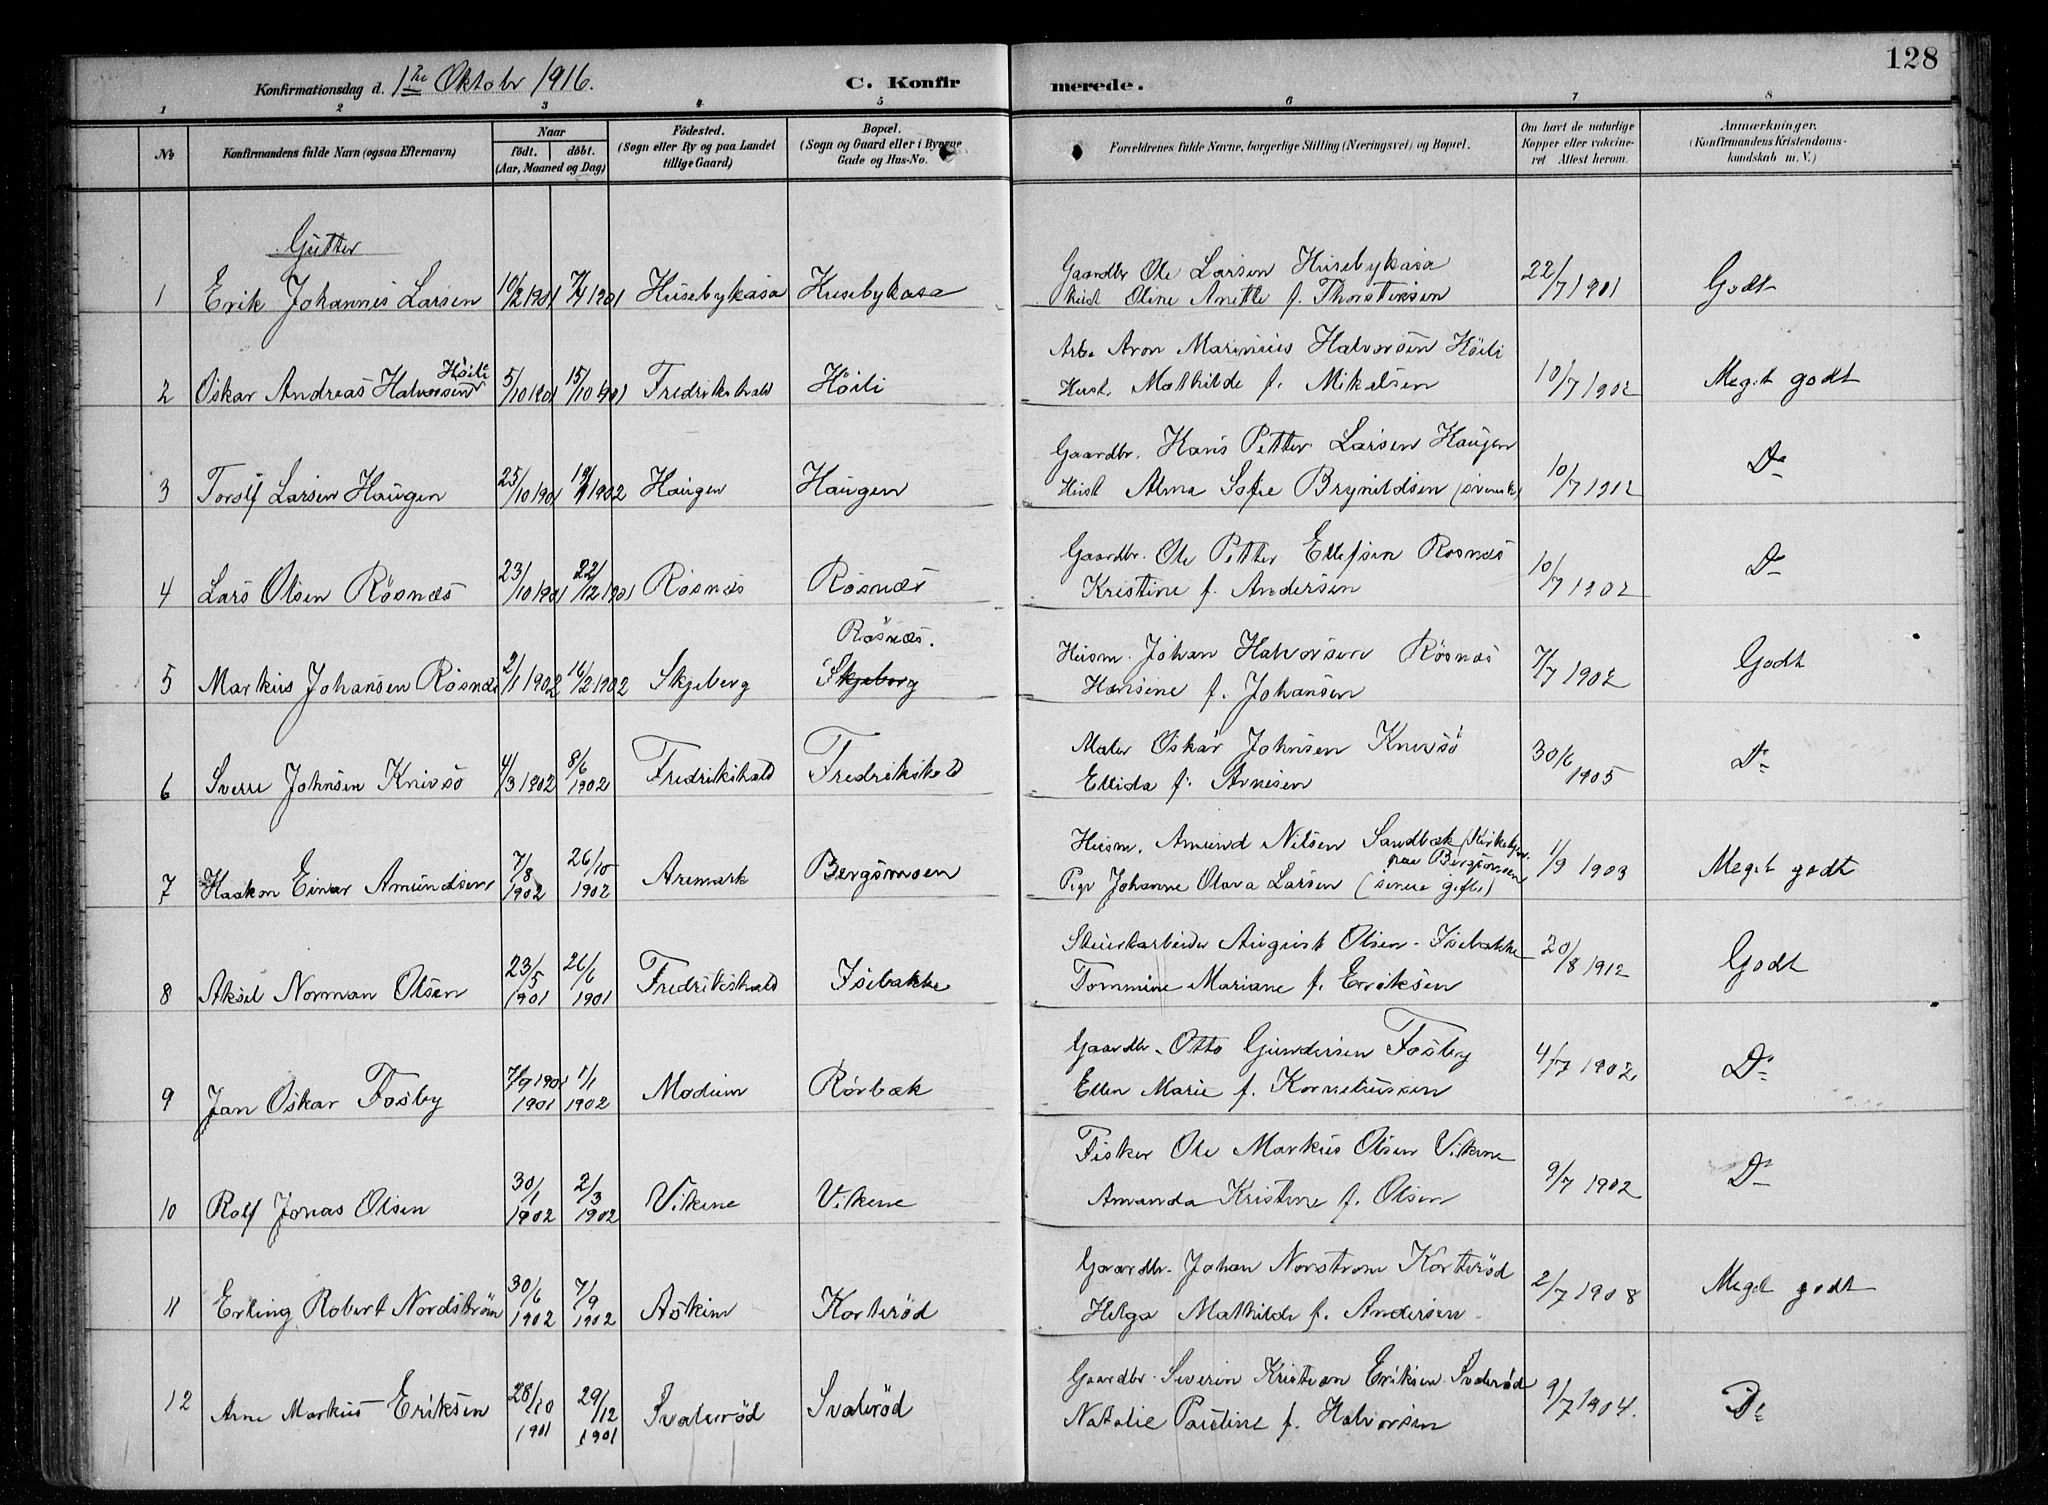 128
Konfirmationsdag d. 1ste Oktobr 1916. C. Konfirmerede.
1 2 3 4 5 6 7 8
No
Konfirmandens fulde Navn (ogsaa Efternavn)
Naar
födt. döbt.
(Aar, Maaned og Dag)
Födested.
(Sogn eller By og paa Landet
tillige Gaard)
Bopæl.
(Sogn og Gaard eller i Byerne
Gade og Hus-No.
Forældrenes fulde Navne, borgerlige Stilling (Næringsvei) og Bopæl.
Om havt de naturlige
Kopper eller vakcine-
ret Attest herom.
Anmærkninger.
(Konfirmandens Kristendoms-
kundskab m. V.)
Gutter
1 Erik Johannes Larsen 10/2 1901 7/4 1901 Husebykasa Husebykasa Gaardbr Ole Larsen Husebykasa 22/7 1901 Godt
Hust Oline Anette f. Thorstensen
2 Oskar Andreas Halvorsen Höili 5/10 1901 15/10 1901 Fredrikshald Höili Arb. Aron Marinius Halvorsen Höili 10/7 1902 Meget godt
Hust. Mathilde f. Mikalsen
3 Torolf Larsen Haugen 25/10 1901 1902 Haugen Haugen Gaardbr. Hans Petter Larsen Haugen 10/7 1912 Do
Hust Alma Sofie Brynildsen (svensk)
4 Lars Olsen Rösnæs 23/10 1901 22/12 1901 Rösnæs Rösnæs Gaardbr. Ole Petter Ellefsen Rosnæs 10/7 1902 Do
Kristine f. Andersen
5 Markus Johansen Rösnæs 2/1 1902 16/2 1902 Skjeberg Rösnæs. Skjeberg Husm. Johan Halvorsen Rösnæs 7/7 1902 Godt
Hansine f. Johansen
6 Sverre Johnsen Knivsö 4/3 1902 8/6 1902 Fredrikshald Fredrikshald Maler Oskar Johnsen Knivsö 30/6 1905 Do
Ellida f. Arnesen
7 Haakon Einar Amundsen 7/8 1902 26/10 1902 Aremark Bergsmoen Husm. Amund Nilsen Sandbæk 1/9 1903 Meget godt
paa Bergsmoen
Pige Johanne Olava Larsen (senere gifte)
8 Aksel Norman Olsen 23/5 1901 26/6 1901 Fredrikshald Isebakke Stenarbeider August Olsen Isebakke 20/8 1912 Godt
Tommine Mariane f. Eriksen
9 Jan Oskar Fosby 7/9 1901 1901 1/1 1902 Modum Rörbæk Gaardbr. Otto Gundersen Fosby 4/7 1902 Do
Ellen Marie f. Korneliussen
10 Rolf Jonas Olsen 30/1 1902 2/3 1902 Vikene Vikene Fisker Ole Markus Olsen Vikene 9/7 1902 Do
Amanda Kristine f. Olsen
11 Erling Robert Nordström 30/6 1902 7/9 1902 Askim Korteröd Gaardbr. Johan Norstrom Korteröd 2/7 1908 Meget godt
Helga Mathilde f. Andersen
12 Arne Markus Eriksen 28/10 1901 29/12 1901 Svaleröd Svaleröd Gaardbr. Severin Kristian Eriksen Svaleröd 9/7 1904. Do
Natalie Pauline f. Halvorsen